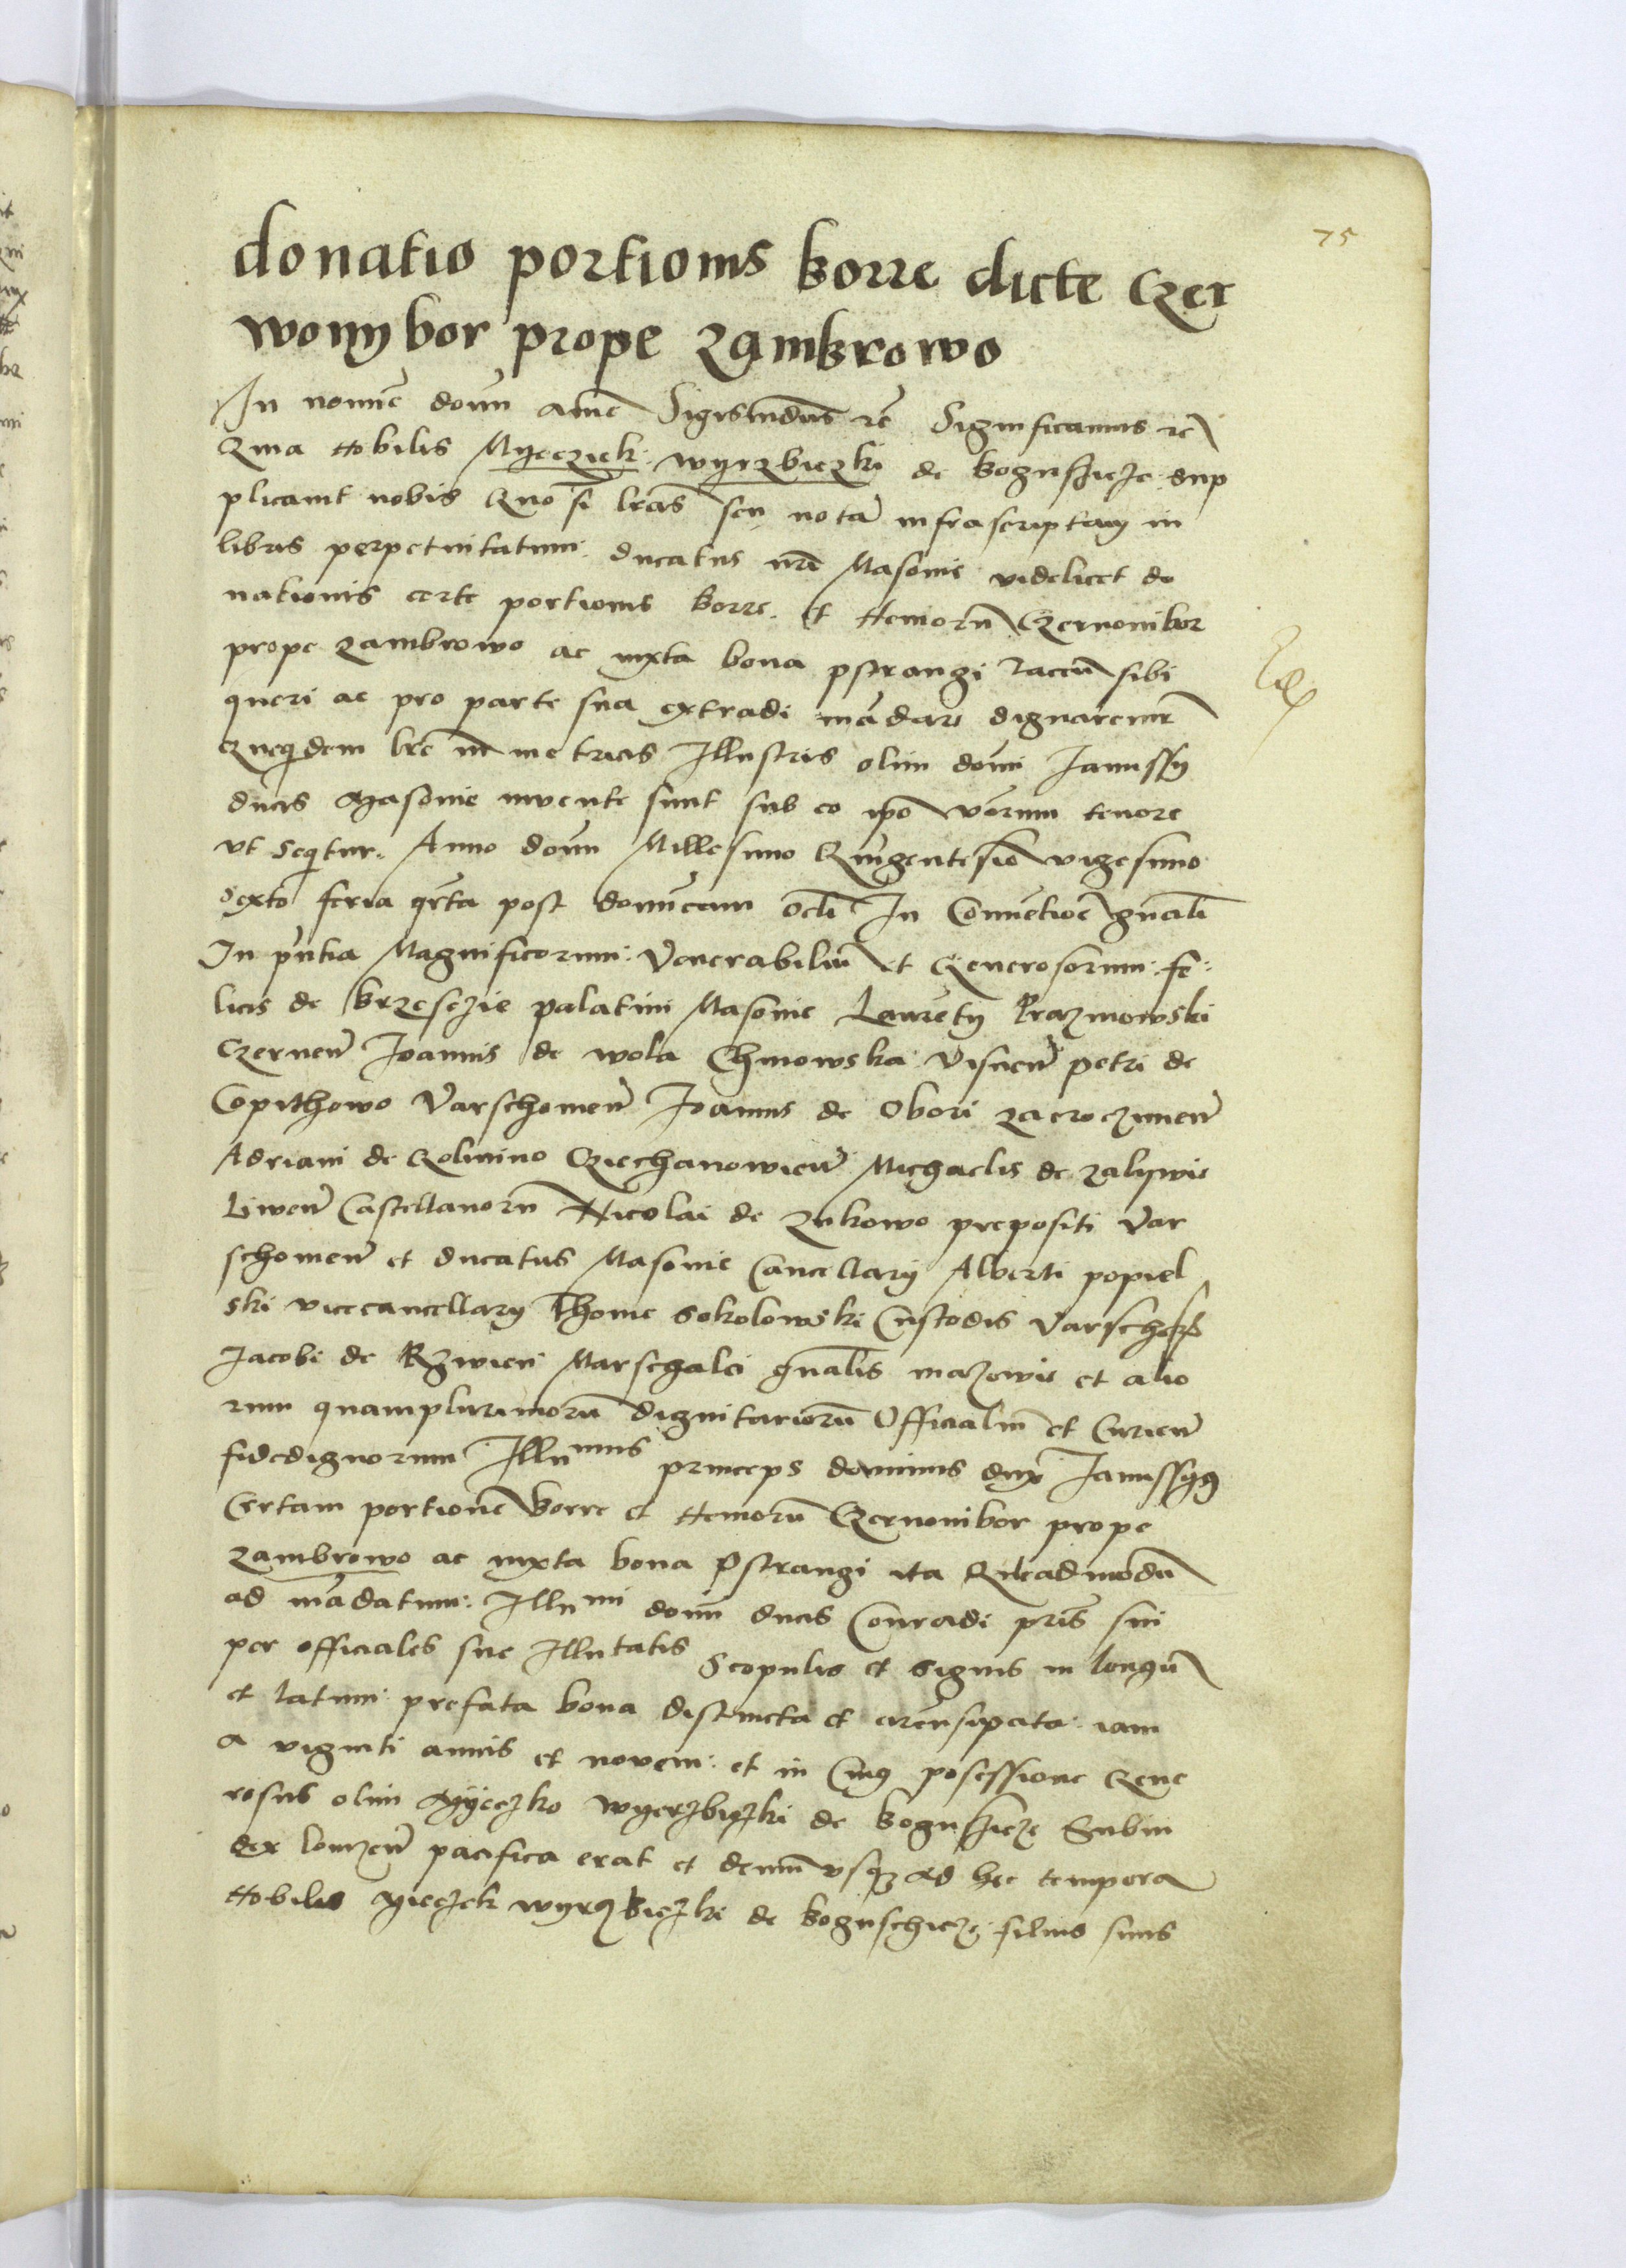 75
donatio portionis borre dicte Czer
wonybor prope Zambrowo
In noīe domī amē Sigismūdus rē Significamus rē
Quia Nobilis Myeczek wyerzbiczki de bogusſijcze sup
plicauit nobis Quo si lrās seu notā infrascriptam in
libris perpetuitatum ducatus nrī Masouie videlicet do
nationis certe portionis borre et Nemorū Czerwonibor
prope Zambrowo ac iuxta bona pstrangi
queri ac pro parte sua extradi mādare dignaremur
Quequidem lrē in metricis Illustris olim domī Janussy
ducis Masouie inuente sunt sub eo ipō verborum tenore
vt seqitur. Anno domī Millesimo Quīgentesīo vigesimo
sexto feria qrta post domīcam Ocli In Conuētioē gnāli
In pn̄tia Magnificorum Venerabiliū et Generosorum fe
licis de brzesczie palatini Masouie Laurēty Prazmowski
Czernen̄ Joannis de wola Chinowska Visnen̄ petri de
Copithowo Varschouien̄ Joannis de Obori zacroczimen̄
Adriani de Golimino Cziechanowien̄ Michaelis de zaliwie
Liwen̄ Castellanorū Nicolai de zukowo prepositi Var
schouien̄ et ducatus Masouie Cancellarij Alberti popiel
ski vicecancellarij Thome sokolowski Custodis Varschoȳ
Jacobi de Rzwien Marschalci gnālis mazowie et alio
rum quamplurimorū dignitariorū Officialiū et Curien̄
fidedignorum Illu mus princeps dominus dux Janussyus
Certam portionē borre et Nemorū Czerwonibor prope
Zambrowo ac iuxta bona Pstrangi ita Queadmodū
ad mādatum Illu mi domī ducis Conradi pris sui
per officiales sue Illu tatis Scopulis et signis in longū
et latum prefata bona distincta et circūsipata iam
a viginti annis et novem et in Cuius posessione Gene
rosus olim Myeczko wyerzbiczki de boguschicze Subiu
dex lomzen̄ pacifica erat et demū vsqz ad hec tempora
Nobilis Mieczek wyerzbiczki de boguschicze filius suus